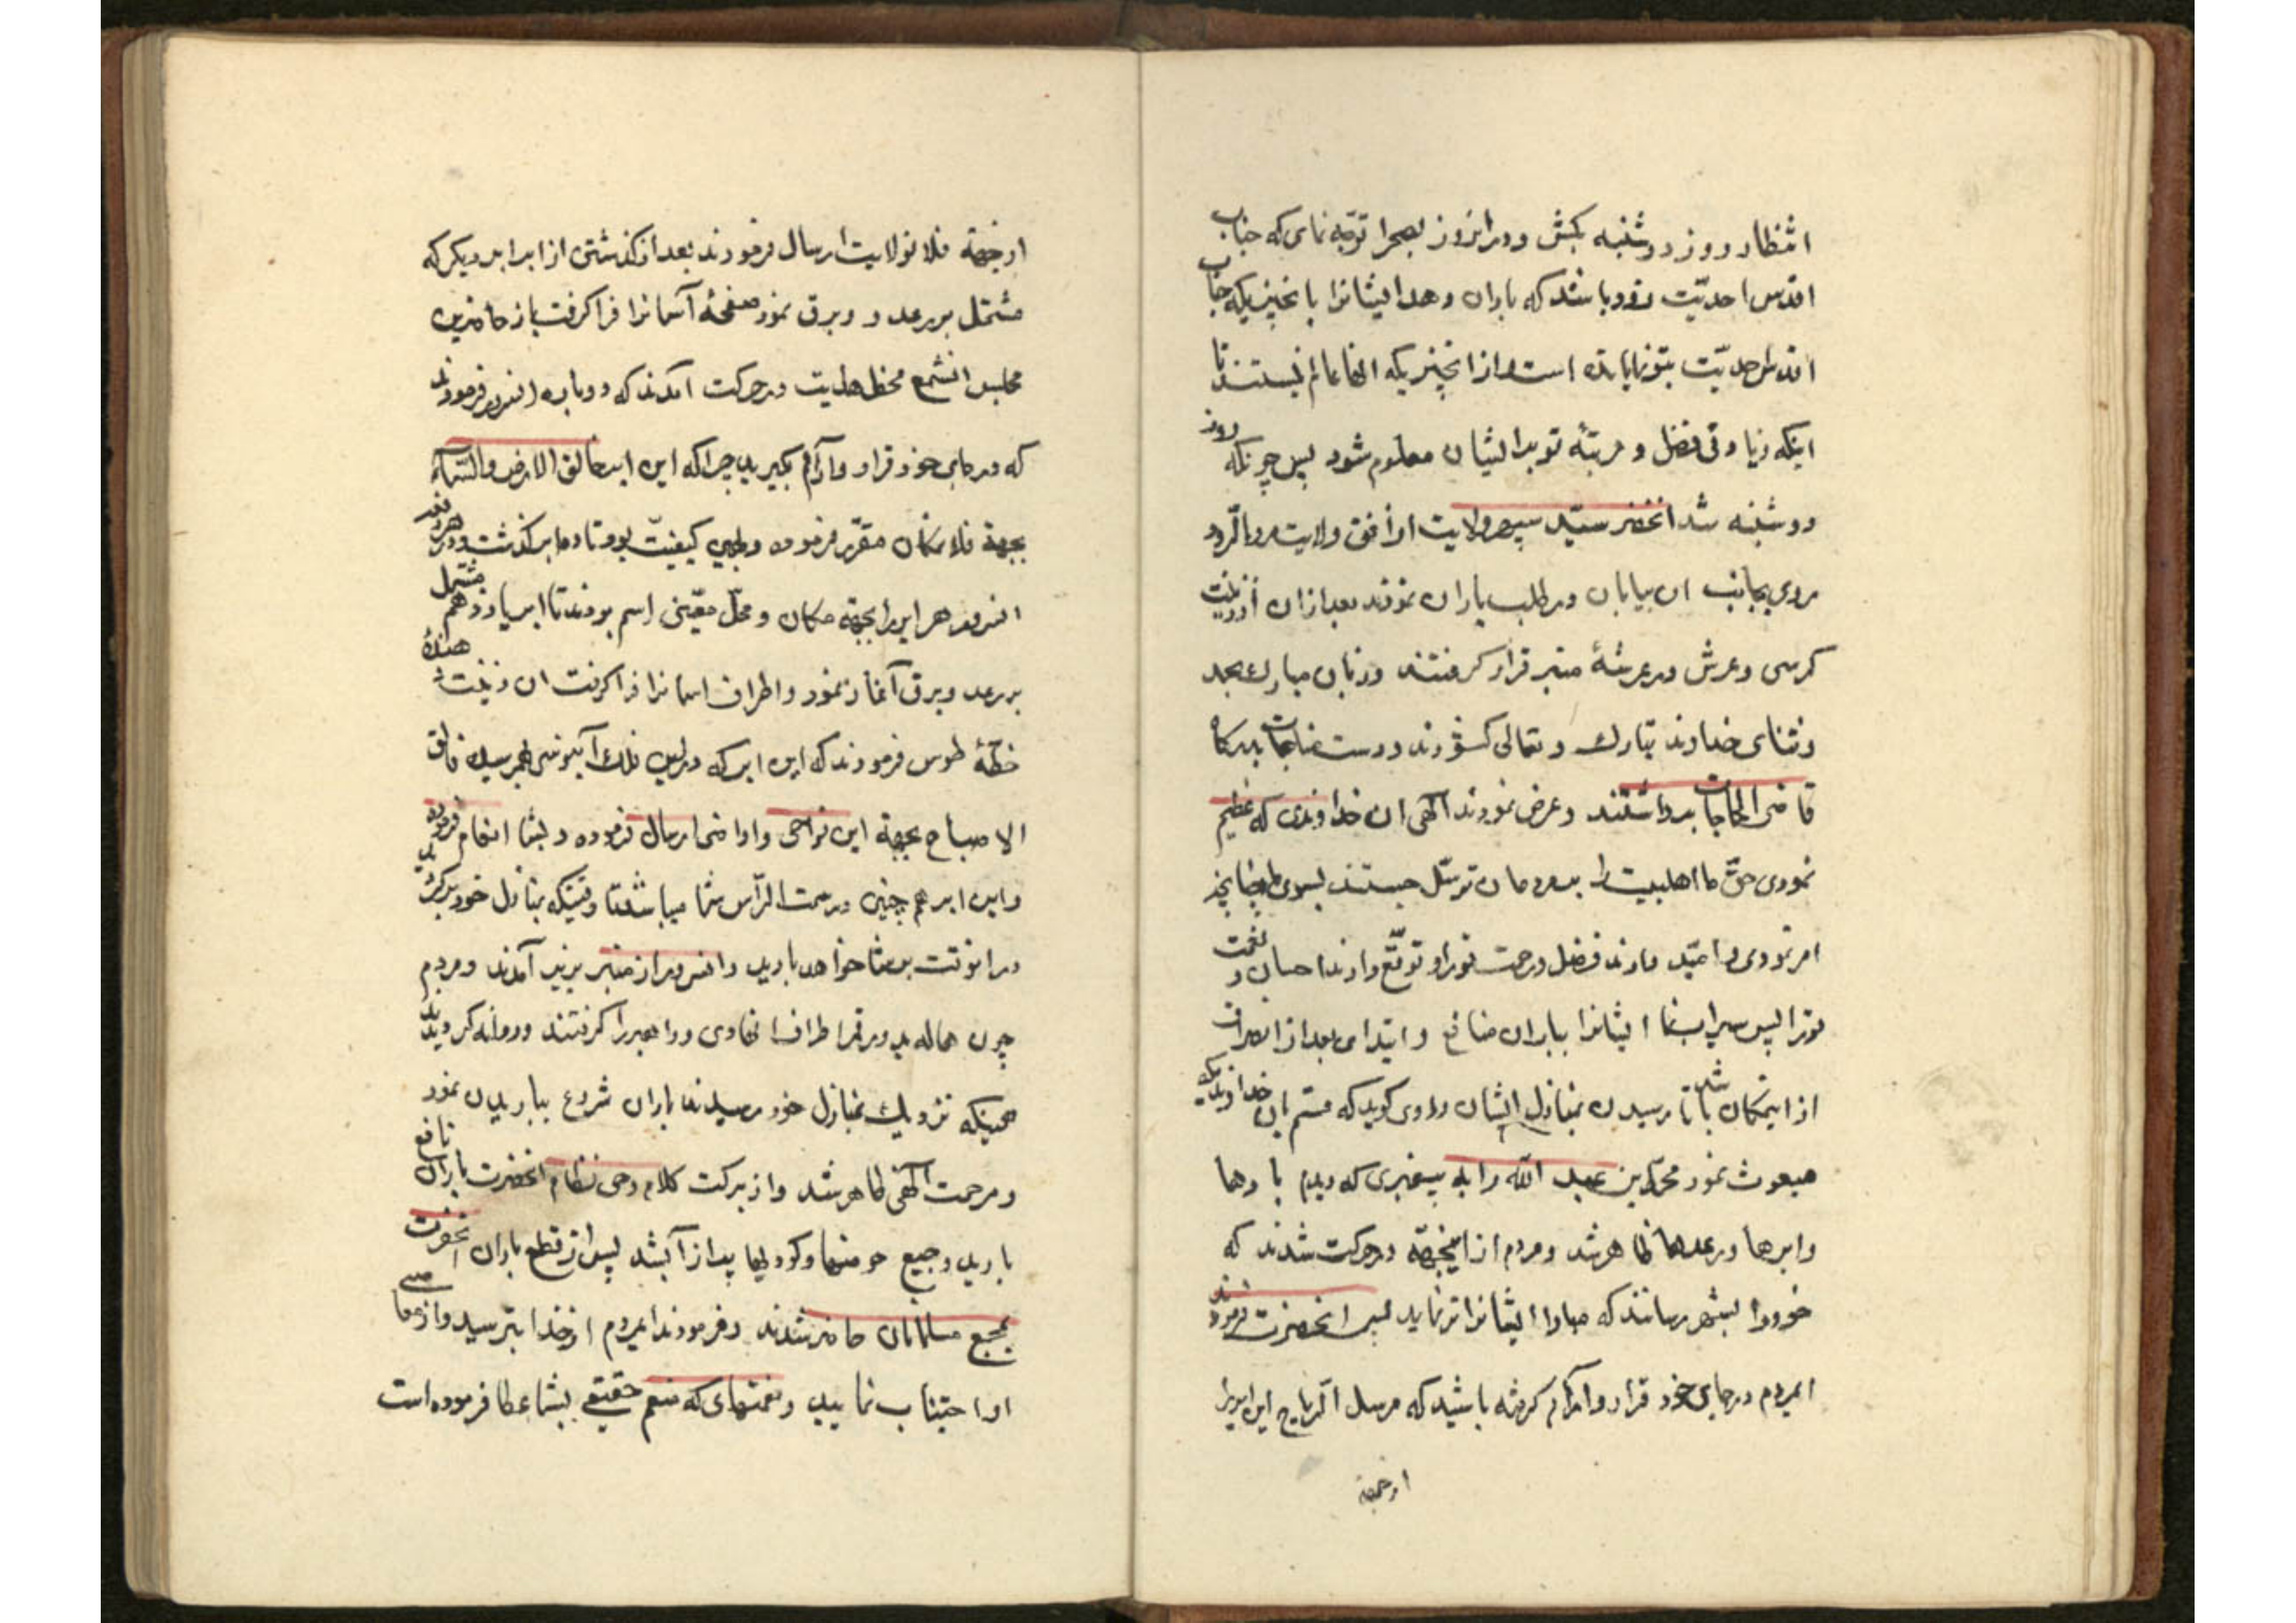 انتظار روز دوشنبه بکش و در انروز بصحرا توجّه نمای که جناب
اقدس احدیّت زود باشد که باران دهد ایشانرا بانچیزیکه جناب
اقدس احدیّت بتو نمایانده است و از انچیزیکه انها عالم نیستند تا
اینکه زیادتی فضل و مرتبهٔ تو بر ایشان معلوم شود پس چونکه روز
دوشنبه شد انحضرت سیّد سپهر ولایت از افق ولایت
روی بجانب ان بیابان در طلب باران نمودند بعد از ان زینت
کرسی و عرش در عرشهٔ منبر قرار کرفتند و زبان مبارک بحمد
و ثنای خداوند تبارک و تعالی کشودند و دست مناجات بدرکاه
قاضی الحاجات برداشتند و عرض نمودند الهی ان خداوندی که عظیم
نمودی حقّ ما اهلبیت را مردمان توسّل جستند بسوی ما چنانچه
امر نمودی و امّید دارند فضل و رحمت تورا و توقّع دارند احسان و نعمت
تورا پس سیراب نما ایشانرا بباران نافع و ابتدای بعد از انصراف
از اینمکان باشد تا رسیدن بمنازل ایشان راوی کوید که قسم بان خداوندیکه
مبعوث نمود محمّد بن عبد الله را به پیغمبری که دیدم بادها
و ابرها و رعدها ظاهر شد و مردم از اینجهة در حرکت شدند که
خود را بشهر رسانند که مبادا ایشانرا تر نماید پس انحضرت فرمودند
ایمردم در جای خود قرار و ارام کرفته باشید که مرسل الریاح این ابر را
ازجهة
ازجهة فلان ولایت ارسال فرمودند بعد از کذشتن از ابر ابر دیکر که
مشتمل بر رعد و برق نمود صفحهٔ آسمانرا فرا کرفت باز حاضرین
مجلس انشمع محفل هدایت در حرکت امدند که دوباره انسرور فرمودند
که در جای خود قرار و آرام بکیرید چرا که این ابر خالق الارض و السّماء
بجهة فلان مکان مقرّر فرموده و بهمین کیفیّت بود تا ده ابر کذشت و هر دفعه
انسرور هر ابر را بجهة مکان و محلّ معیّنی اسم بردند تا ابر یازدهم مشتمل
بر رعد و برق آغاز نمود و اطراف اسمانرا فرا کرفت ان زینت دهندهٔ
خطّهٔ طوس فرمودند که این ابر که در این فلک آبنوسی بهم رسیده فالق
الاصباح بجهة این نواحی و اراضی ارسال فرموده و بشما انعام فرموده
و این ابر هم چنین در سمت الرّاس شما میباشد تا وقتیکه بمنازل خود برکردید
در انوقت بر شما خواهد بارید و انسرور از منبر بزیر آمدند و مردم
چون هاله بدور قمر اطراف انهادی و راهبر را کرفتند و روانه کردیدند
همینکه نزدیک بمنازل خود رسیدند باران شروع بباریدن نمود
و مرحمت الهی ظاهر شد و از برکت کلام وحی نظام انحضرت باران نافع
بارید و جمیع حوضها و کودیها پر از آب شد پس از قطع باران انحضرت
بمجمع مسلمانان حاضر شدند و فرمودند ایمردم از خدا بترسید و از معاصی
او اجتناب نمایید و نعمتهای که منعم حقیقی بشما عطا فرموده است